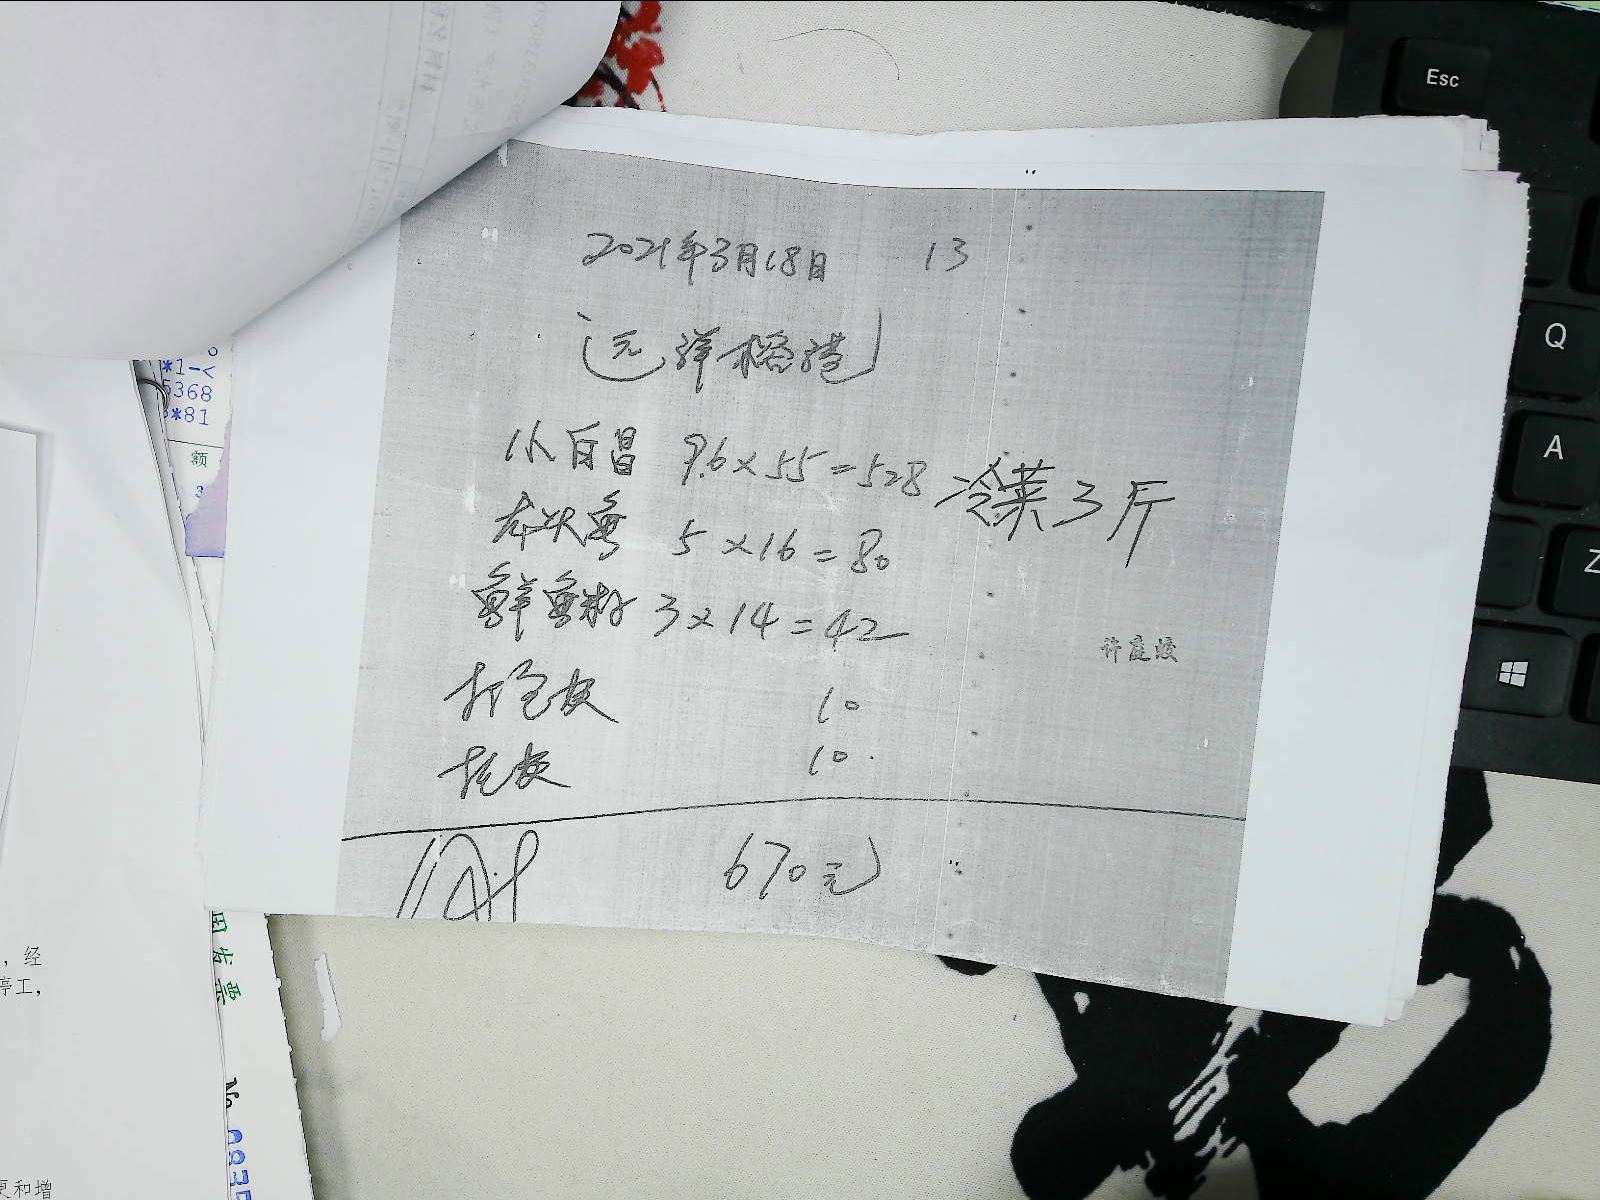 2021年3月18日 13
远洋榕港
小白昌 9.6×55=528 冷菜3斤
5×16=80
鲜鱼籽 3×14=42
许庭波
打包灰 10
10
670元
Esc
Q
A
Z
*1-<
5368
*81
额
，经
停工，
用发票
No
更和增